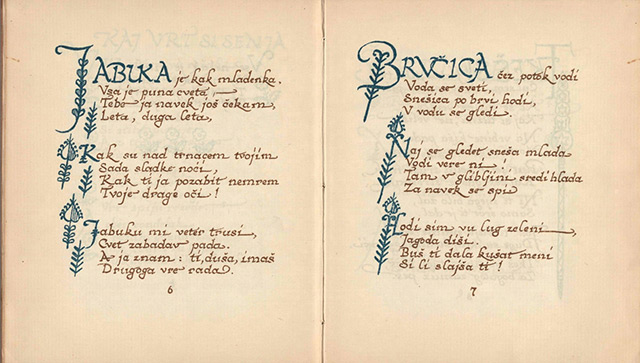 JABUKA je kak mladenka.
Vsa je puna cveta,
Tebe ja navek još čekam,
Leta, duga leta,
Kak su nad trnacem tvojim
Sada sladke noći,
Kak ti ja pozabit nemrem
Tvoje drage oči!
Jabuku mi veter trusi,
Cvet zabadav pada.
A ja znam: ti, duša, imaš
Drugoga vre rada.
6
BRVČICA čez potok vodi
Voda se sveti,
Snešica po brvi hodi,
V vodu se gledi.
Naj se gledet sneša mlada
Vodi vere ni,
Tam v glibljini sredi hlada
Za navek se spi
Hodi sim vu lug zeleni,
Jagoda diši.
Buš ti dala kušat meni
Si li slajša ti!
7